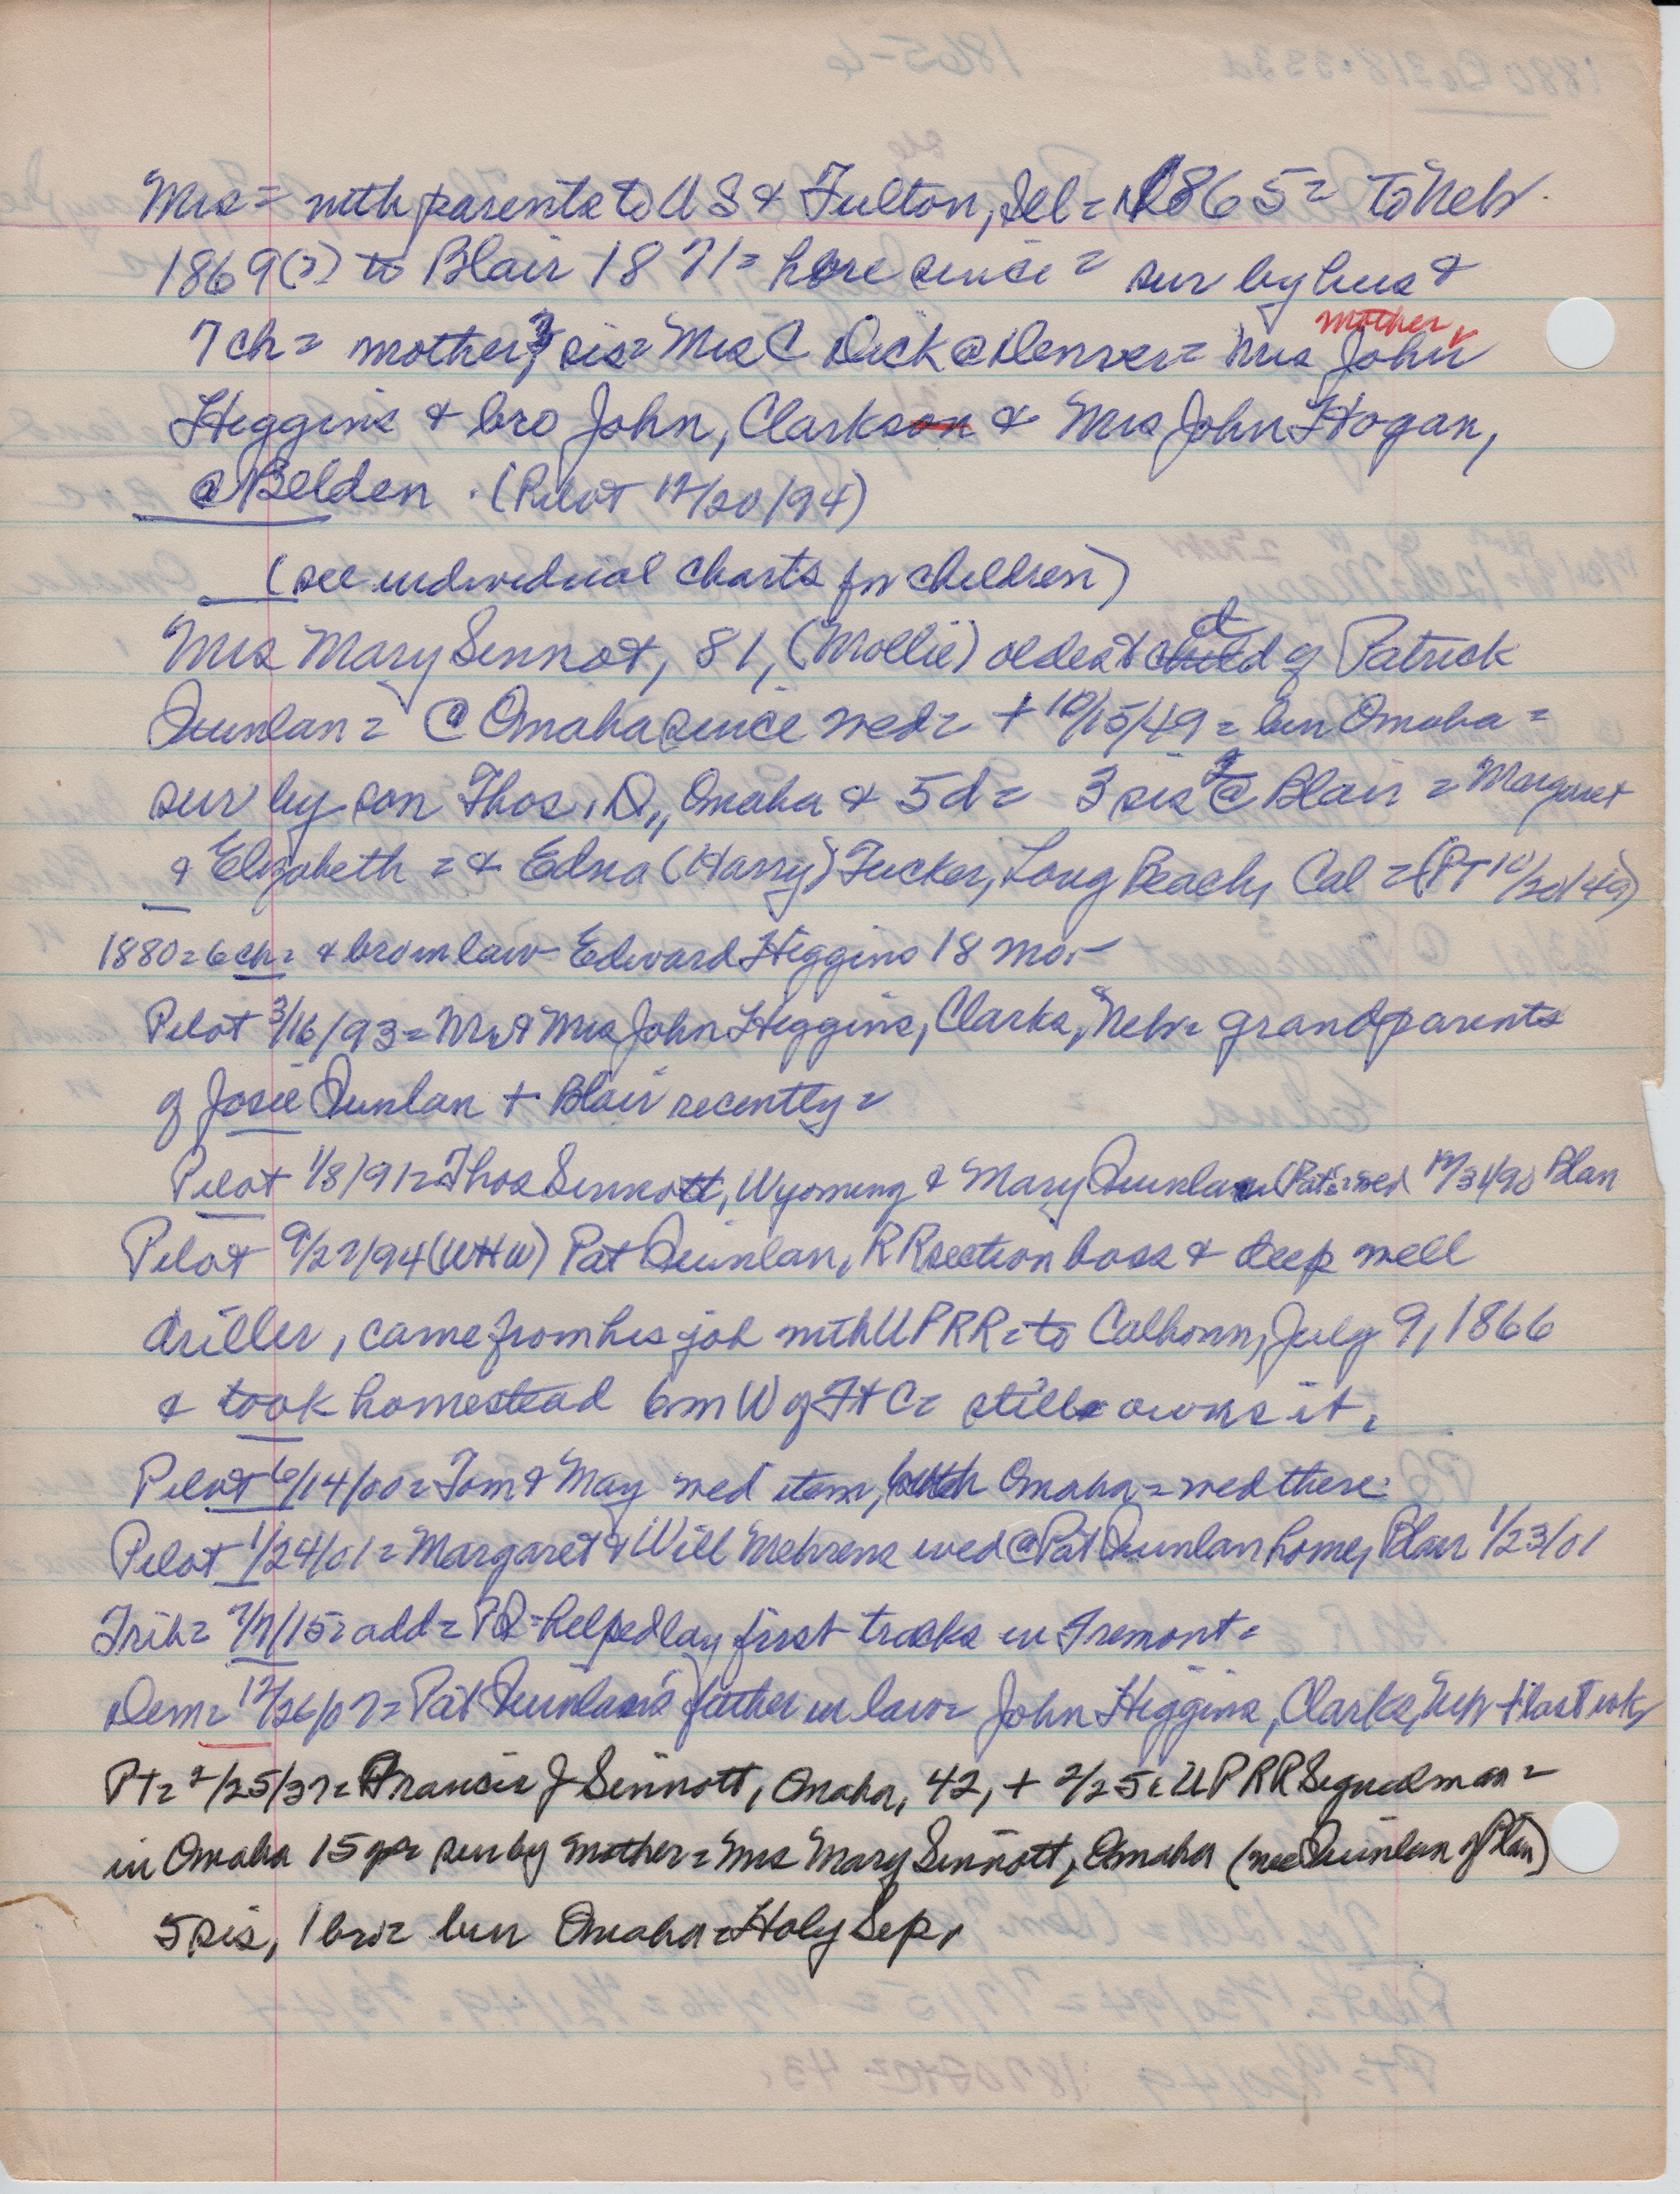 Mrs = with parents to U S & Fulton, Ill = 1865 = to Neb
1869(?) to Blair 1871 = here since = sur by hus &
7 ch = mother, 3 sis = Mrs C Dick @ Denver = Mrs John
mother
Higgins & bro John, Clarkson & Mrs John Hogan,
@ Belden. (Pilot 12/20/94)
(see individual charts for children)
Mrs Mary Sennot, 81, (Mollie) oldest child of Patrick
Quinlan = @ Omaha since wed = + 10/15/49 = bur Omaha =
sur by son Thos. D., Omaha & 5 d = 3 sis 2 @ Blair = Margaret
& Elizabeth = & Edna (Harry) Tucker, Long Beach, Cal = (PT 10/20/49)
1880 = 6 ch = & bro in law Edward Higgins 18 mo. -
Pilot 3/16/93 = Mr & Mrs John Higgins, Clarks, Neb = grandparents
of Josie Quinlan + Blair recently =
Pilot 1/8/91 = Thos Sennott, Wyoming & Mary Quinlan (Pat's = wed 12/31/90 Blair
Pilot 9/27/94 (WHW) Pat Quinlan, RR section boss & deep well
driller, came from his job with UPRR = to Calhoun, July 9, 1866
& took homestead 6m W of Ft C = still owns it.
Pilot 6/14/00 = Tom & May wed item, both Omaha = wed there.
Pilot 1/24/01 = Margaret & Will Mehrens wed @ Pat Quinlan home, Blair 1/23/01
Trib = 7/7/15 = add = PQ = helped lay first tracks in Fremont =
Dem = 12/26/07 = Pat Quinlan's father in law = John Higgins, Clarks, Neb + last wk
PT = 2/25/37 = Francis J Sinnott, Omaha, 42, + 2/25 = UPRR Signalman =
in Omaha 15 yr = sur by mother = Mrs Mary Sinnott, Omaha (nee Quinlan of Blair)
5 sis, 1 bro = bur Omaha = Holy Sep,